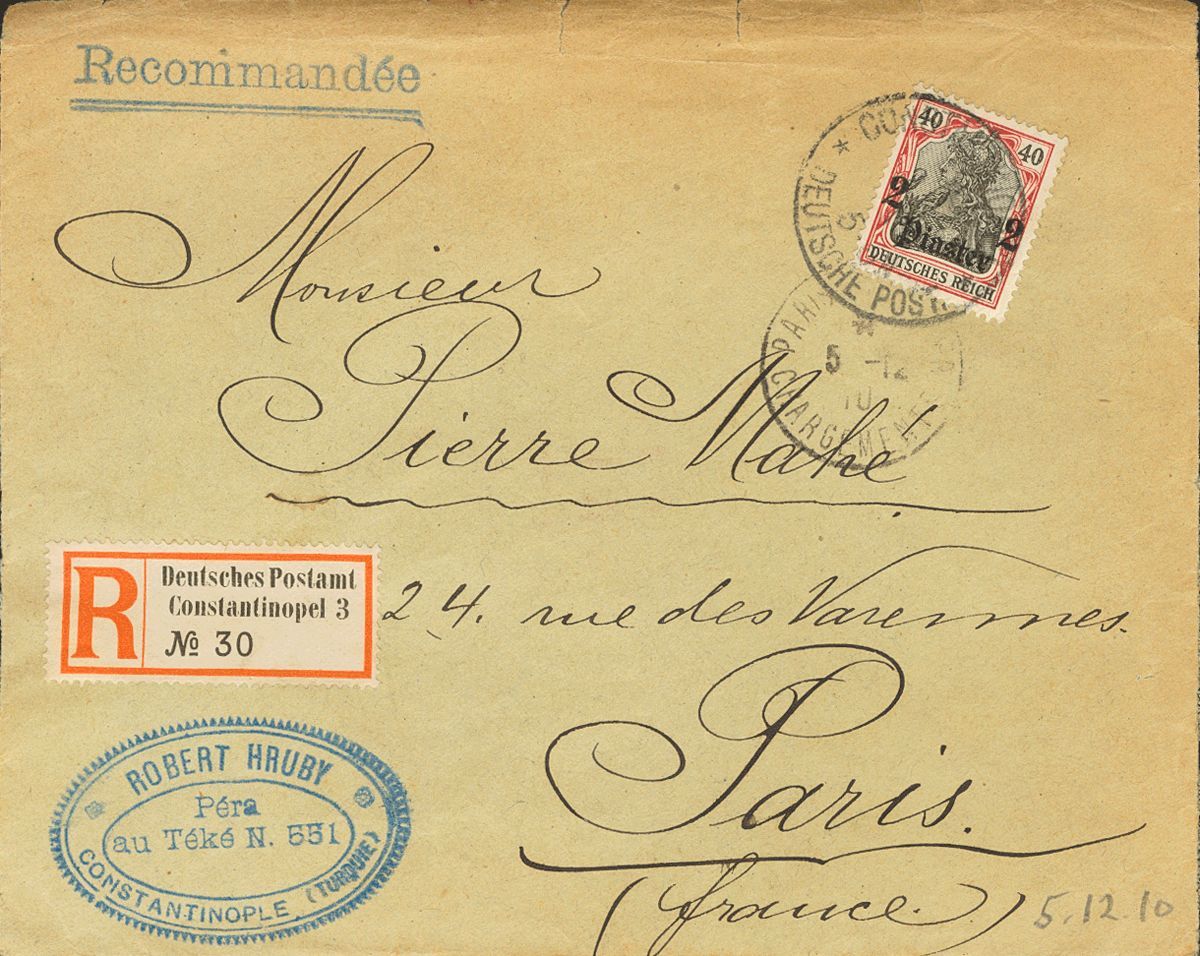 Recommandée
40 40
2 2
Piaster
DEUTSCHES REICH
* DEUTSCHE POST
5
PARIS
5 -12
10
CHARGEMENTS
Monsieur
Pierre Mahé
24. rue des Varennes.
Paris.
(france.)
R
Deutsches Postamt
Constantinopel 3
№ 30
ROBERT HRUBY
Péra
au Téké N. 551
CONSTANTINOPLE (TURQUIE)
5.12.10